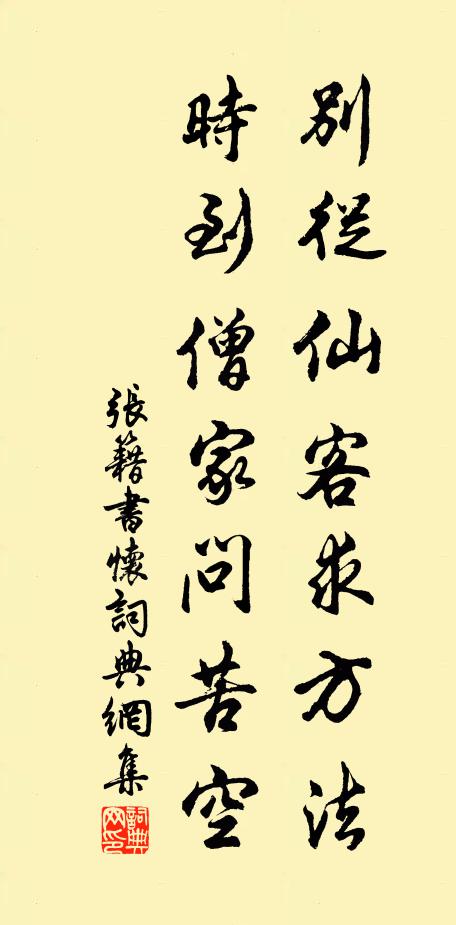 別從仙客求方法
時到僧家問苦空
張籍書懷詞典網集
詞典
网印